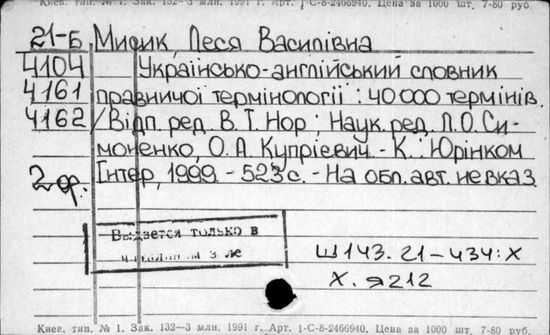 Киев. тип. № 1. Зак. 132—3 млн. 1991 г. Арт. 1-С-8-2466940. Цена за 1000 шт. 7-80 руб.
21-Б Мисик, Леся Василівна
4104 Українсько-англійський словник
4161 правничої термінології : 40 000 термінів.
4162 / Відп. ред. В. Т. Нор ; Наук. ред. Л. О. Си-
моненко, О. А. Купрієвич. - К. : Юрінком
2 др. Інтер, 1999. - 523 с. - На обл. авт. не вказ.
Выдается только в
Ш143.21-434:Х
Х.я212
Киев. тип. № 1. Зак. 132—3 млн. 1991 г. Арт. 1-С-8-2466940. Цена за 1000 шт. 7-80 руб.